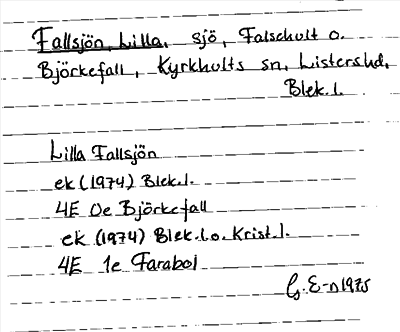 Fallsjön, Lilla, sjö, Falsehult o.
Björkefall, Kyrkhults sn, Listers hd,
Blek.l.
Lilla Fallsjön
ek (1974) Blek.l.
4E 0e Björkefall
ek (1974) Blek.l.o. Krist.l.
4E 1e Farabol
G. E-n 1975